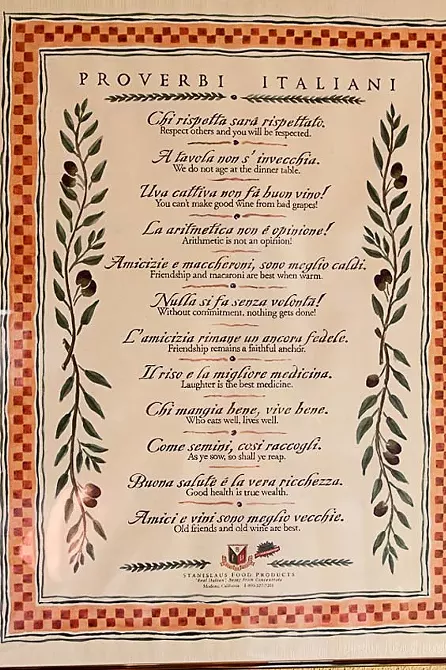 PROVERBI ITALIANI
Chi rispetta sará rispettato.
Respect others and you will be respected.
A tavola non s' invecchia.
We do not age at the dinner table.
Uva cattiva non fá buon vino!
You can't make good wine from bad grapes!
La aritmetica non é opinione!
Arithmetic is not an opinion!
Amicizie e maccheroni, sono meglio caldi.
Friendship and macaroni are best when warm.
Nulla si fa senza volontá!
Without commitment, nothing gets done!
L'amicizia rimane un ancora fedele.
Friendship remains a faithful anchor.
Il riso e la migliore medicina.
Laughter is the best medicine.
Chi mangia bene, vive bene.
Who eats well, lives well.
Come semini, cosi raccogli.
As ye sow, so shall ye reap.
Buona saluté é la vera ricchezza.
Good health is true wealth.
Amici e vini sono meglio vecchie.
Old friends and old wine are best.
STANISLAUS FOOD PRODUCTS
"Real Italian", Never From Concentrate
Modesto, California